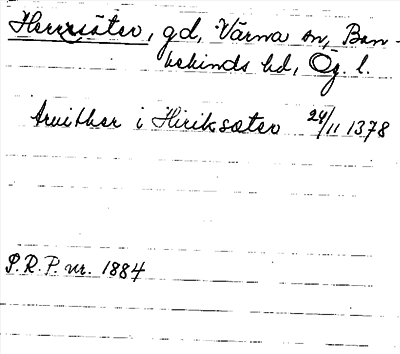 Herrsäter, gd, Värna sn, Ban-
kekinds hd, Ög. l.
Arvither i Hiriksæter 24/11 1378
S.R.P. nr. 1884